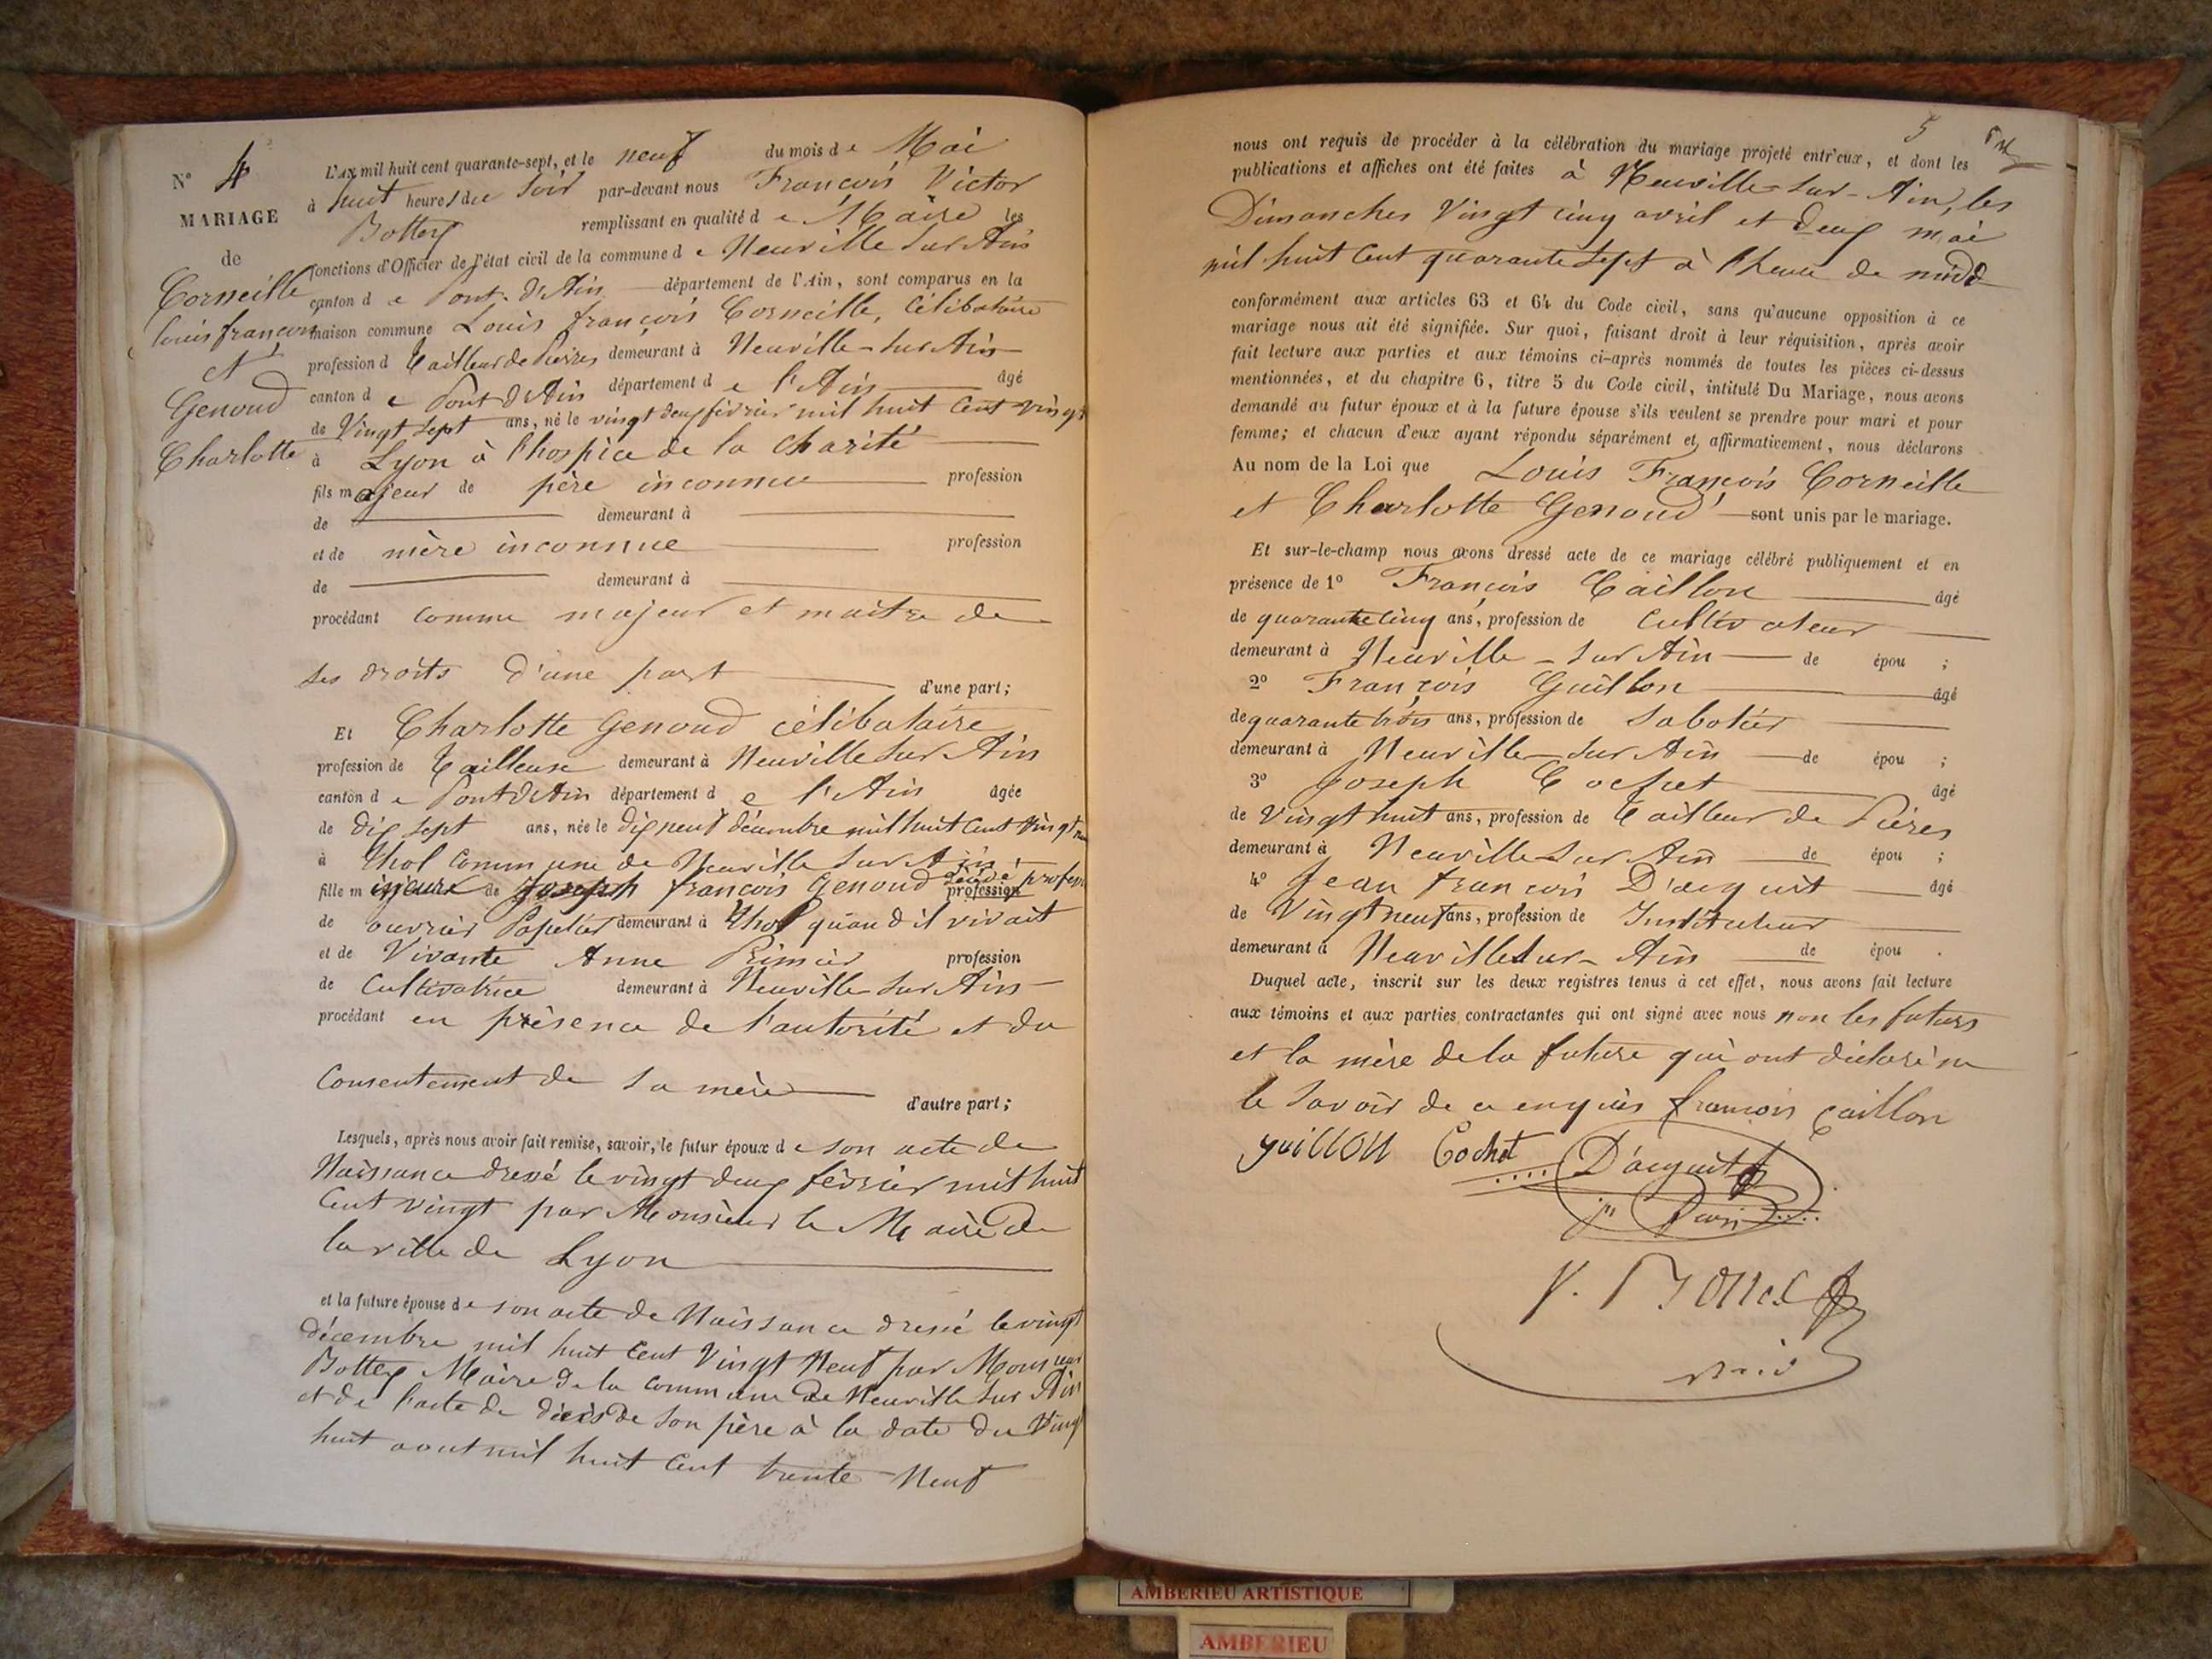 N° 4
MARIAGE
de
Corneille
louis françois
et
Genoud
Charlotte
L'AN mil huit cent quarante-sept, et le neuf du mois de Mai
à huit heures du soir par-devant nous François Victor
Bottex remplissant en qualité de Maire les
fonctions d'Officier de l'état civil de la commune de Neuville sur Ain
canton de Pont-d'Ain département de l'Ain, sont comparus en la
maison commune Louis françois Corneille, célibataire
profession d Tailleur de Pierres demeurant à Neuville-sur Ain
canton de Pont d'Ain département de l'Ain âgé
de Vingt sept ans, né le vingt deux février mil huit cent vingt
à Lyon à l'hospice de la charité
fils majeur de père inconnu profession
de demeurant à
et de mère inconnue profession
de demeurant à
procédant comme majeur et maitre de
ses droits d'une part d'une part;
Et Charlotte Genoud célibataire
profession de Tailleuse demeurant à Neuville sur Ain
canton de Pont d'Ain département de l'Ain âgée
de dix sept ans, née le dix neuf décembre mil huit cent vingt
à Thol commune de Neuville sur Ain
fille mineure de Joseph françois Genoud décédé profession
de ouvrier Papetier demeurant à Thol quand il vivait
et de Vivante Anne profession
de Cultivatrice demeurant à Neuville sur Ain
procédant en présence de l'autorité et du
Consentement de sa mère d'autre part;
Lesquels, après nous avoir fait remise, savoir, le futur époux de son acte de
Naissance dressé le vingt deux février mil huit
cent vingt par Monsieur le Maire de
la ville de Lyon
et la future épouse de son acte de Naissance dressé le vingt
décembre mil huit cent Vingt Neuf par Monsieur
Bottex Maire de la commune de Neuville sur Ain
et de l'acte de décès de son père à la date du Vingt
huit aout mil huit cent trente Neuf
5
nous ont requis de procéder à la célébration du mariage projeté entr'eux, et dont les
publications et affiches ont été faites à Neuville-sur-Ain, les
Dimanches Vingt cinq avril et deux mai
mil huit cent quarante sept à l'heure de midi
conformément aux articles 63 et 64 du Code civil, sans qu'aucune opposition à ce
mariage nous ait été signifiée. Sur quoi, faisant droit à leur réquisition, après avoir
fait lecture aux parties et aux témoins ci-après nommés de toutes les pièces ci-dessus
mentionnées, et du chapitre 6, titre 5 du Code civil, intitulé Du Mariage, nous avons
demandé au futur époux et à la future épouse s'ils veulent se prendre pour mari et pour
femme; et chacun d'eux ayant répondu séparément et affirmativement, nous déclarons
Au nom de la Loi que Louis François Corneille
et Charlotte Genoud sont unis par le mariage.
Et sur-le-champ nous avons dressé acte de ce mariage célébré publiquement et en
présence de 1° François Caillon âgé
de quarante cinq ans, profession de Cultivateur
demeurant à Neuville-sur Ain de épou ;
2° François Guillon âgé
de quarante trois ans, profession de Sabotier
demeurant à Neuville-sur Ain de épou ;
3° Joseph Cochet âgé
de Vingt huit ans, profession de Tailleur de Pieres
demeurant à Neuville sur Ain de épou ;
4° Jean François D'acquit âgé
de Vingt neuf ans, profession de Instituteur
demeurant à Neuville sur-Ain de épou .
Duquel acte, inscrit sur les deux registres tenus à cet effet, nous avons fait lecture
aux témoins et aux parties contractantes qui ont signé avec nous non les futurs
et la mère de la future qui ont déclaré ne
le savoir de ce enquis françois Caillon
guillon Cochet D'acquit
V. Bottex
AMBERIEU ARTISTIQUE
AMBERIEU